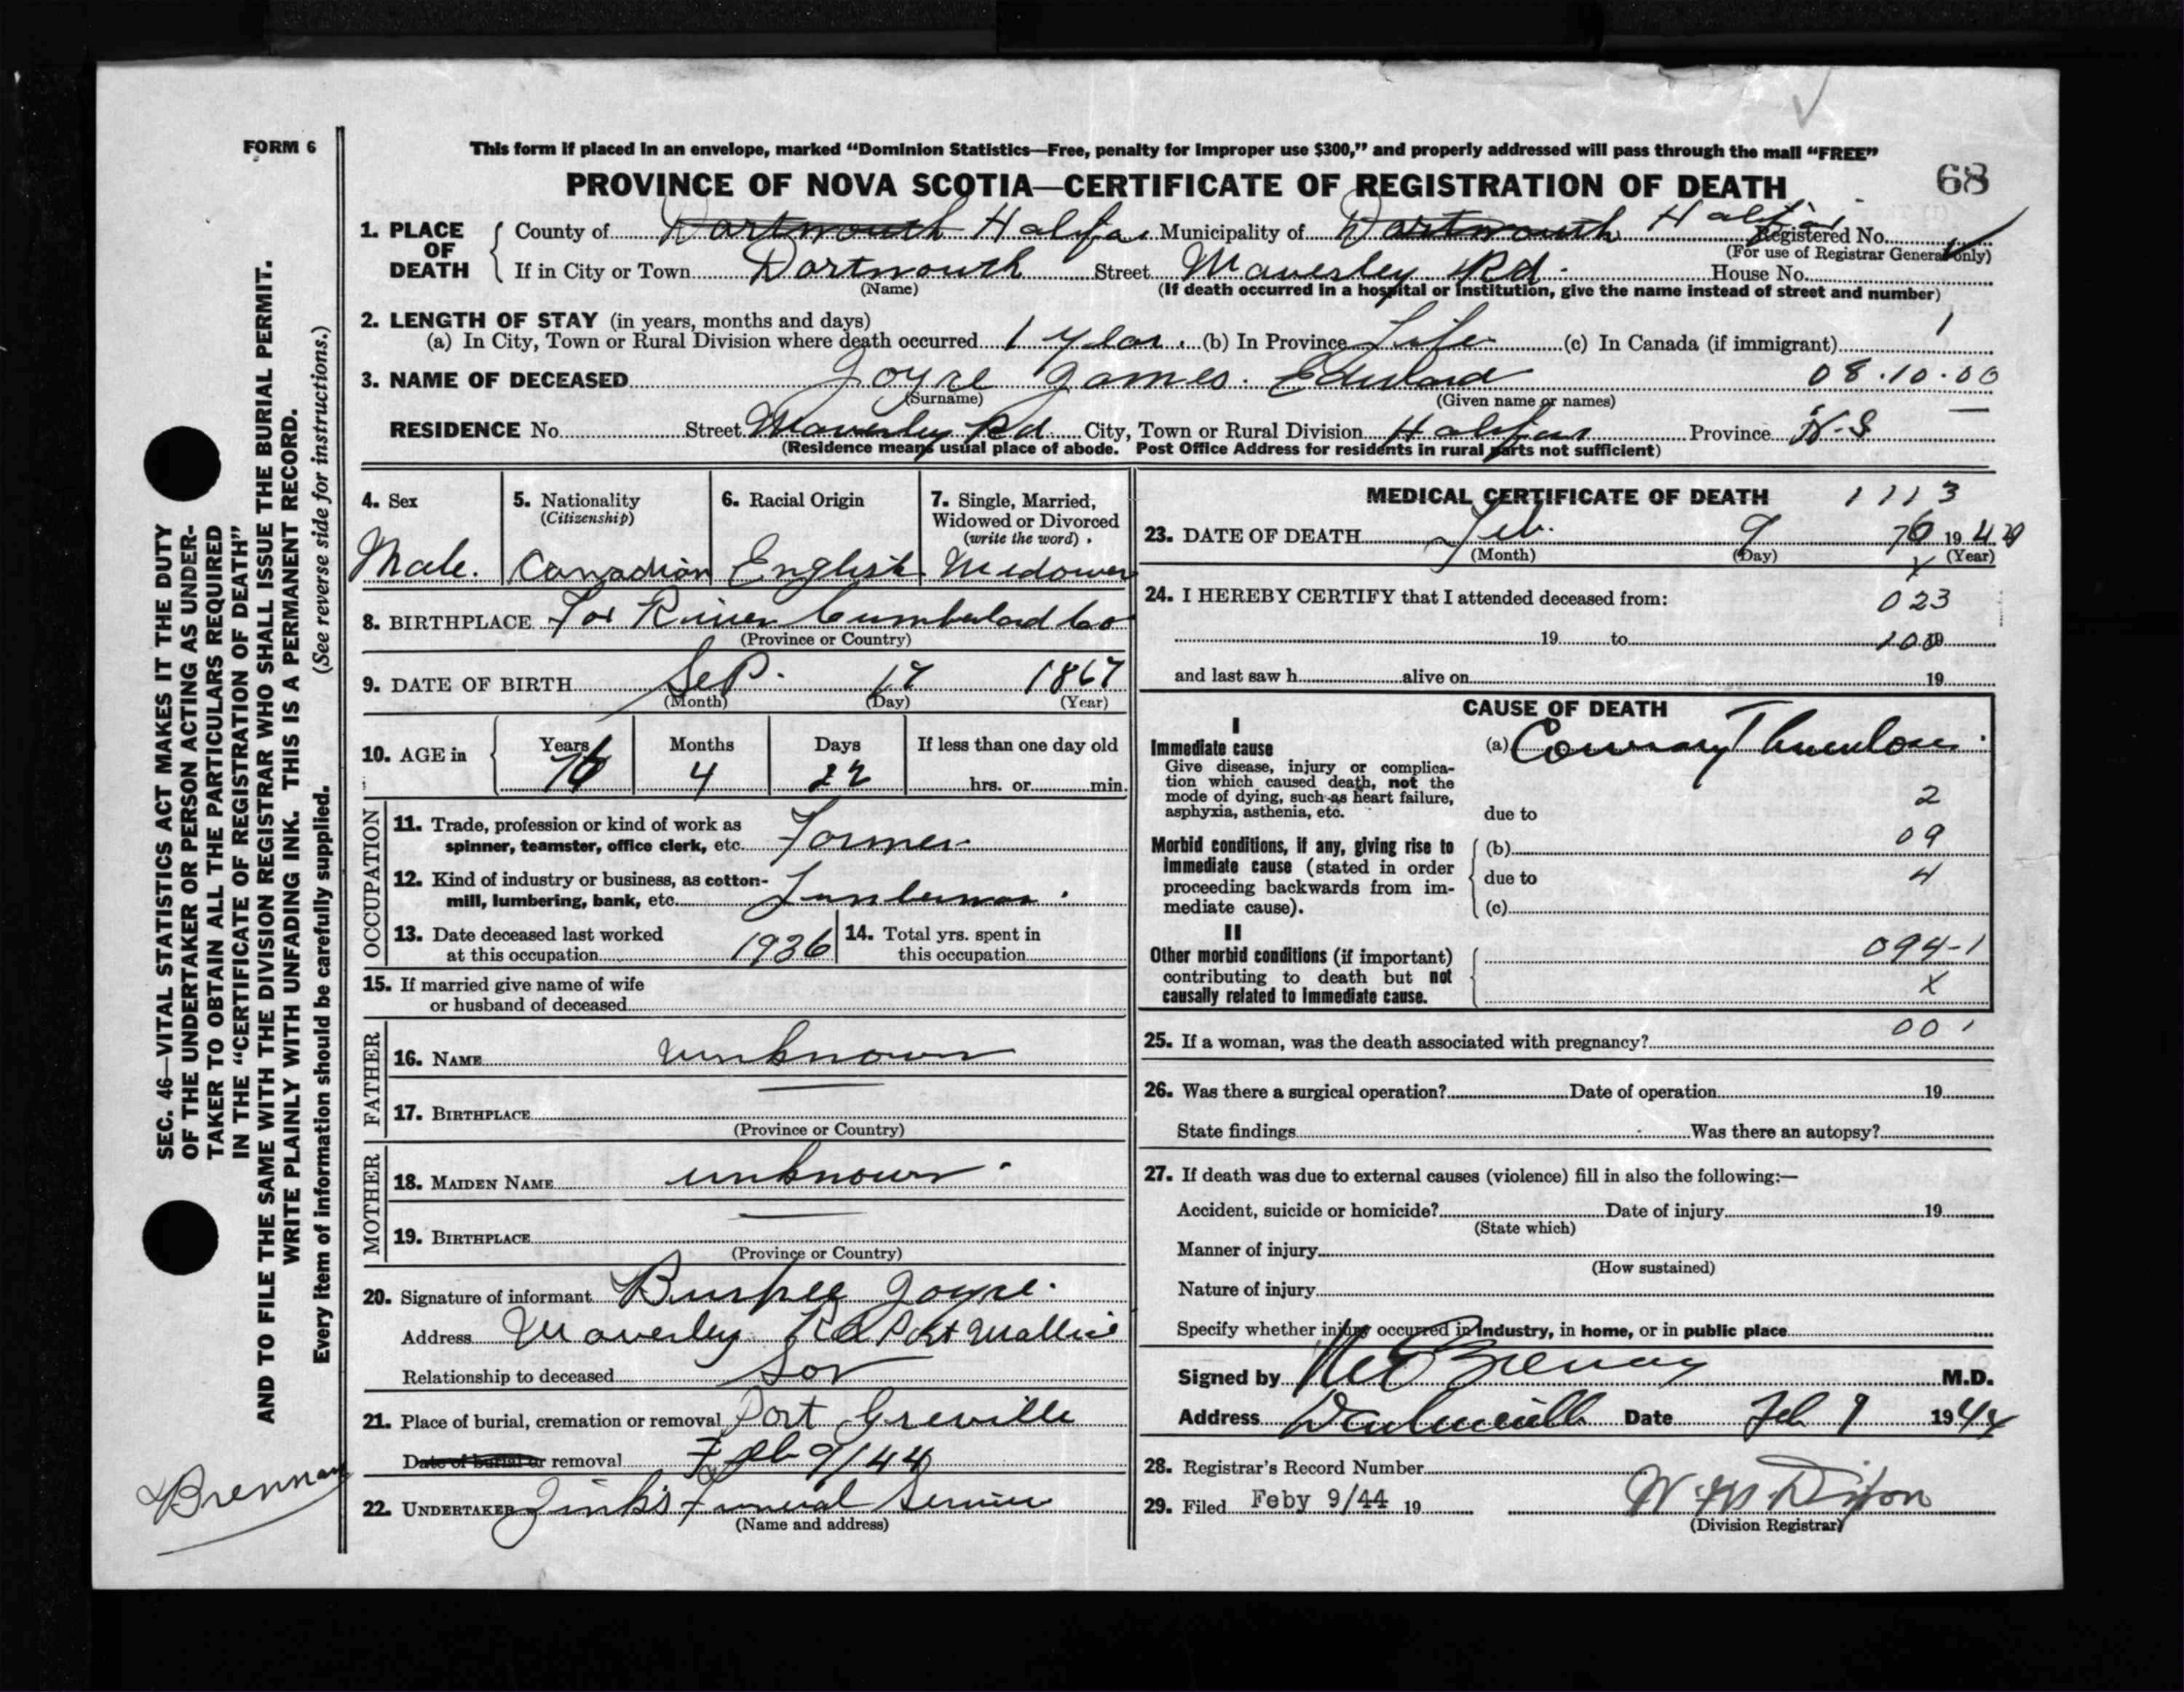 FORM 6
This form if placed in an envelope, marked “Dominion Statistics—Free, penalty for improper use $300,” and properly addressed will pass through the mail “FREE”
PROVINCE OF NOVA SCOTIA—CERTIFICATE OF REGISTRATION OF DEATH
68
1. PLACE OF DEATH
County of Dartmouth Halifax Municipality of Dartmouth Halifax Registered No.
(For use of Registrar General only)
If in City or Town Dartmouth Street Waverley Rd. House No.
(Name) (If death occurred in a hospital or institution, give the name instead of street and number)
2. LENGTH OF STAY (in years, months and days)
(a) In City, Town or Rural Division where death occurred 1 year. (b) In Province Life (c) In Canada (if immigrant) 1
3. NAME OF DECEASED Joyce James. Edward 08.10.00
(Surname) (Given name or names)
RESIDENCE No. Street Waverley Rd. City, Town or Rural Division Halifax Province N.S
(Residence means usual place of abode. Post Office Address for residents in rural parts not sufficient)
4. Sex
Male.
5. Nationality
(Citizenship)
Canadian
6. Racial Origin
English
7. Single, Married,
Widowed or Divorced
(write the word)
Widower
8. BIRTHPLACE Fox River Cumberland Co
(Province or Country)
9. DATE OF BIRTH Sep. 17 1867
(Month) (Day) (Year)
10. AGE in
Years Months Days If less than one day old
76 4 22 hrs. or min.
OCCUPATION
11. Trade, profession or kind of work as
spinner, teamster, office clerk, etc. Farmer
12. Kind of industry or business, as cotton-
mill, lumbering, bank, etc. Lumberman.
13. Date deceased last worked
at this occupation 1936
14. Total yrs. spent in
this occupation
15. If married give name of wife
or husband of deceased
FATHER
16. NAME unknown
17. BIRTHPLACE
(Province or Country)
MOTHER
18. MAIDEN NAME unknown
19. BIRTHPLACE
(Province or Country)
20. Signature of informant Burpee Joyce.
Address Waverley Rd Port Wallis
Relationship to deceased Son
21. Place of burial, cremation or removal Port Greville
Date of burial or removal Feb 9/44
22. UNDERTAKER Zink's Funeral Service
(Name and address)
MEDICAL CERTIFICATE OF DEATH 1113
23. DATE OF DEATH Feb. 9 76 1944
(Month) (Day) (Year)
X
24. I HEREBY CERTIFY that I attended deceased from: 023
19 to 100 19
and last saw h alive on 19
CAUSE OF DEATH
I
Immediate cause
Give disease, injury or complica-
tion which caused death, not the
mode of dying, such as heart failure,
asphyxia, asthenia, etc.
(a) Coronary Thrombosis.
2
due to
Morbid conditions, if any, giving rise to
immediate cause (stated in order
proceeding backwards from im-
mediate cause).
(b) 09
due to 4
(c)
II
Other morbid conditions (if important)
contributing to death but not
causally related to immediate cause.
094-1
X
001
25. If a woman, was the death associated with pregnancy?
26. Was there a surgical operation? Date of operation 19
State findings Was there an autopsy?
27. If death was due to external causes (violence) fill in also the following:—
Accident, suicide or homicide? Date of injury 19
(State which)
Manner of injury
(How sustained)
Nature of injury
Specify whether injury occurred in industry, in home, or in public place
Signed by Brennan M.D.
Address Date Feb 9 1944
28. Registrar's Record Number
29. Filed Feby 9/44 19 W. Dixon
(Division Registrar)
SEC. 46—VITAL STATISTICS ACT MAKES IT THE DUTY
OF THE UNDERTAKER OR PERSON ACTING AS UNDER-
TAKER TO OBTAIN ALL THE PARTICULARS REQUIRED
IN THE “CERTIFICATE OF REGISTRATION OF DEATH”
AND TO FILE THE SAME WITH THE DIVISION REGISTRAR WHO SHALL ISSUE THE BURIAL PERMIT.
WRITE PLAINLY WITH UNFADING INK. THIS IS A PERMANENT RECORD.
Every item of information should be carefully supplied. (See reverse side for instructions.)
Brennan